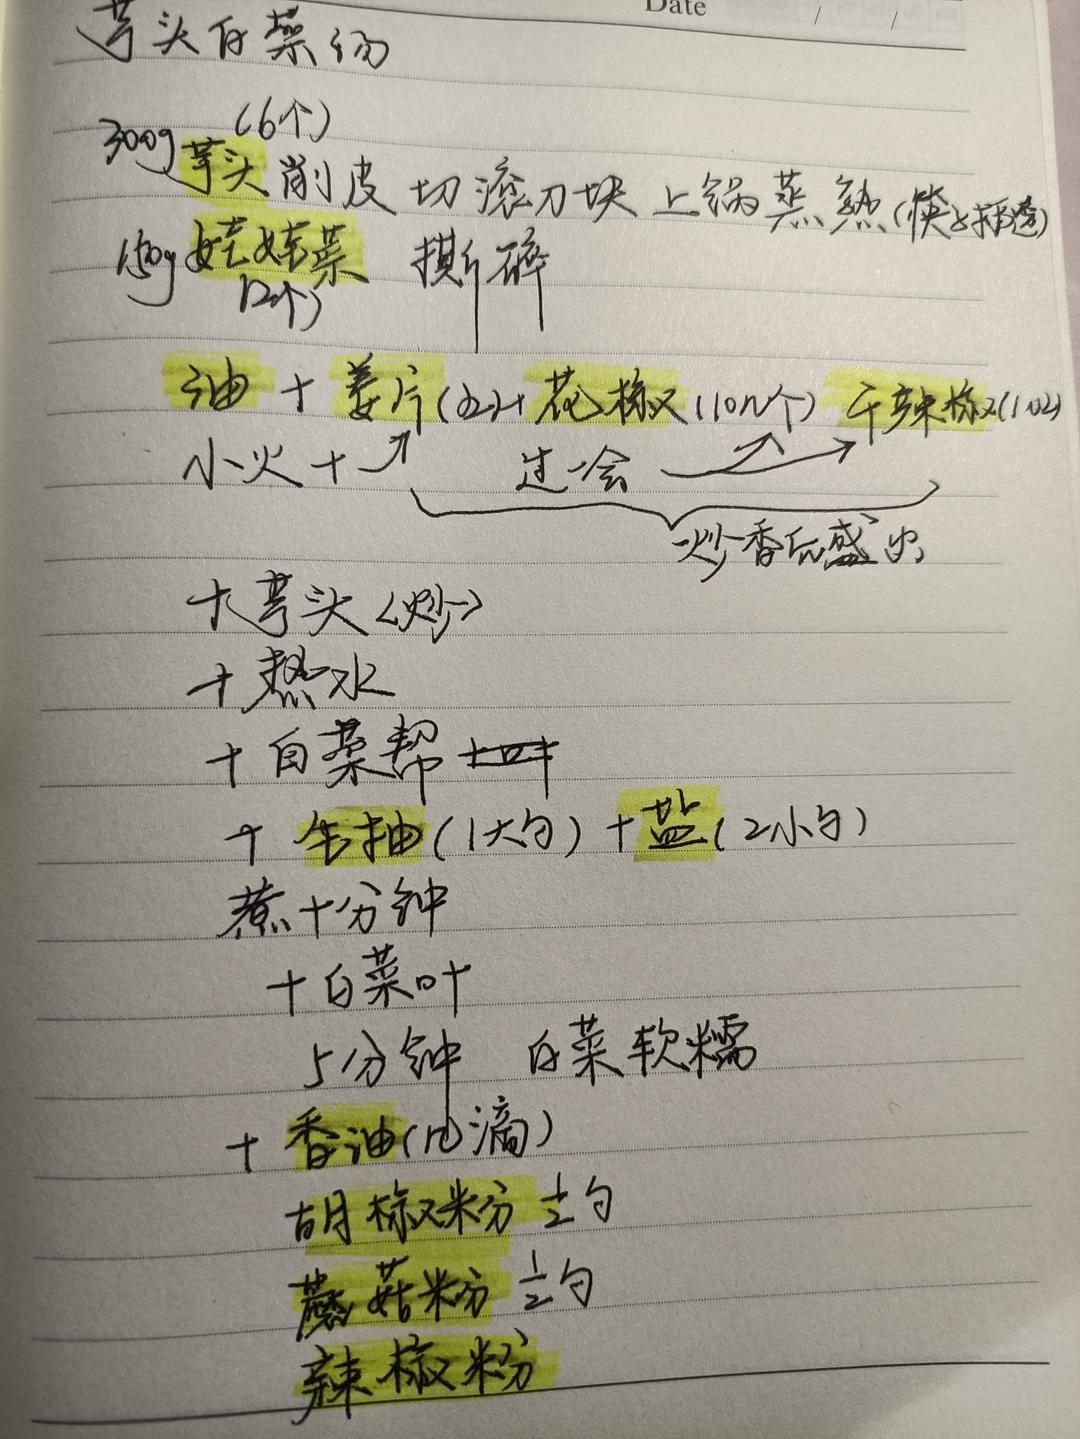 Date / /
芋头白菜汤
(6个)
300g 芋头 削皮 切滚刀块 上锅蒸熟(筷子插透)
150g 娃娃菜 撕碎
(2个)
油 + 姜片 + 花椒 (10几个) 干辣椒
小火 + 过一会
炒香后盛出
+ 芋头 (炒)
+ 热水
+ 白菜帮
+ 生抽 (1大勺) + 盐 (2小勺)
煮十分钟
+ 白菜叶
5分钟 白菜软糯
+ 香油 (几滴)
胡椒粉 1/2勺
蘑菇粉 1/2勺
辣椒粉